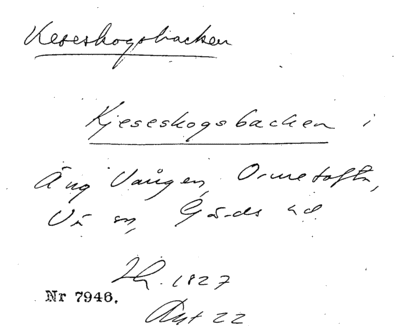 Keseskogsbacken
Kjeseskogsbacken i
Äng Vången, Ormetofta,
Vä sn, Gärds hd
Lh. 1827
Nr 7946.
Akt 22